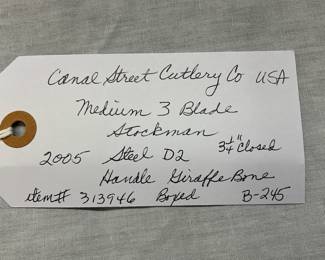 Canal Street Cutlery Co USA
Medium 3 Blade
Stockman
2005 Steel D2 3¼" Closed
Handle Giraffe Bone
item# 313946 Boxed B-245